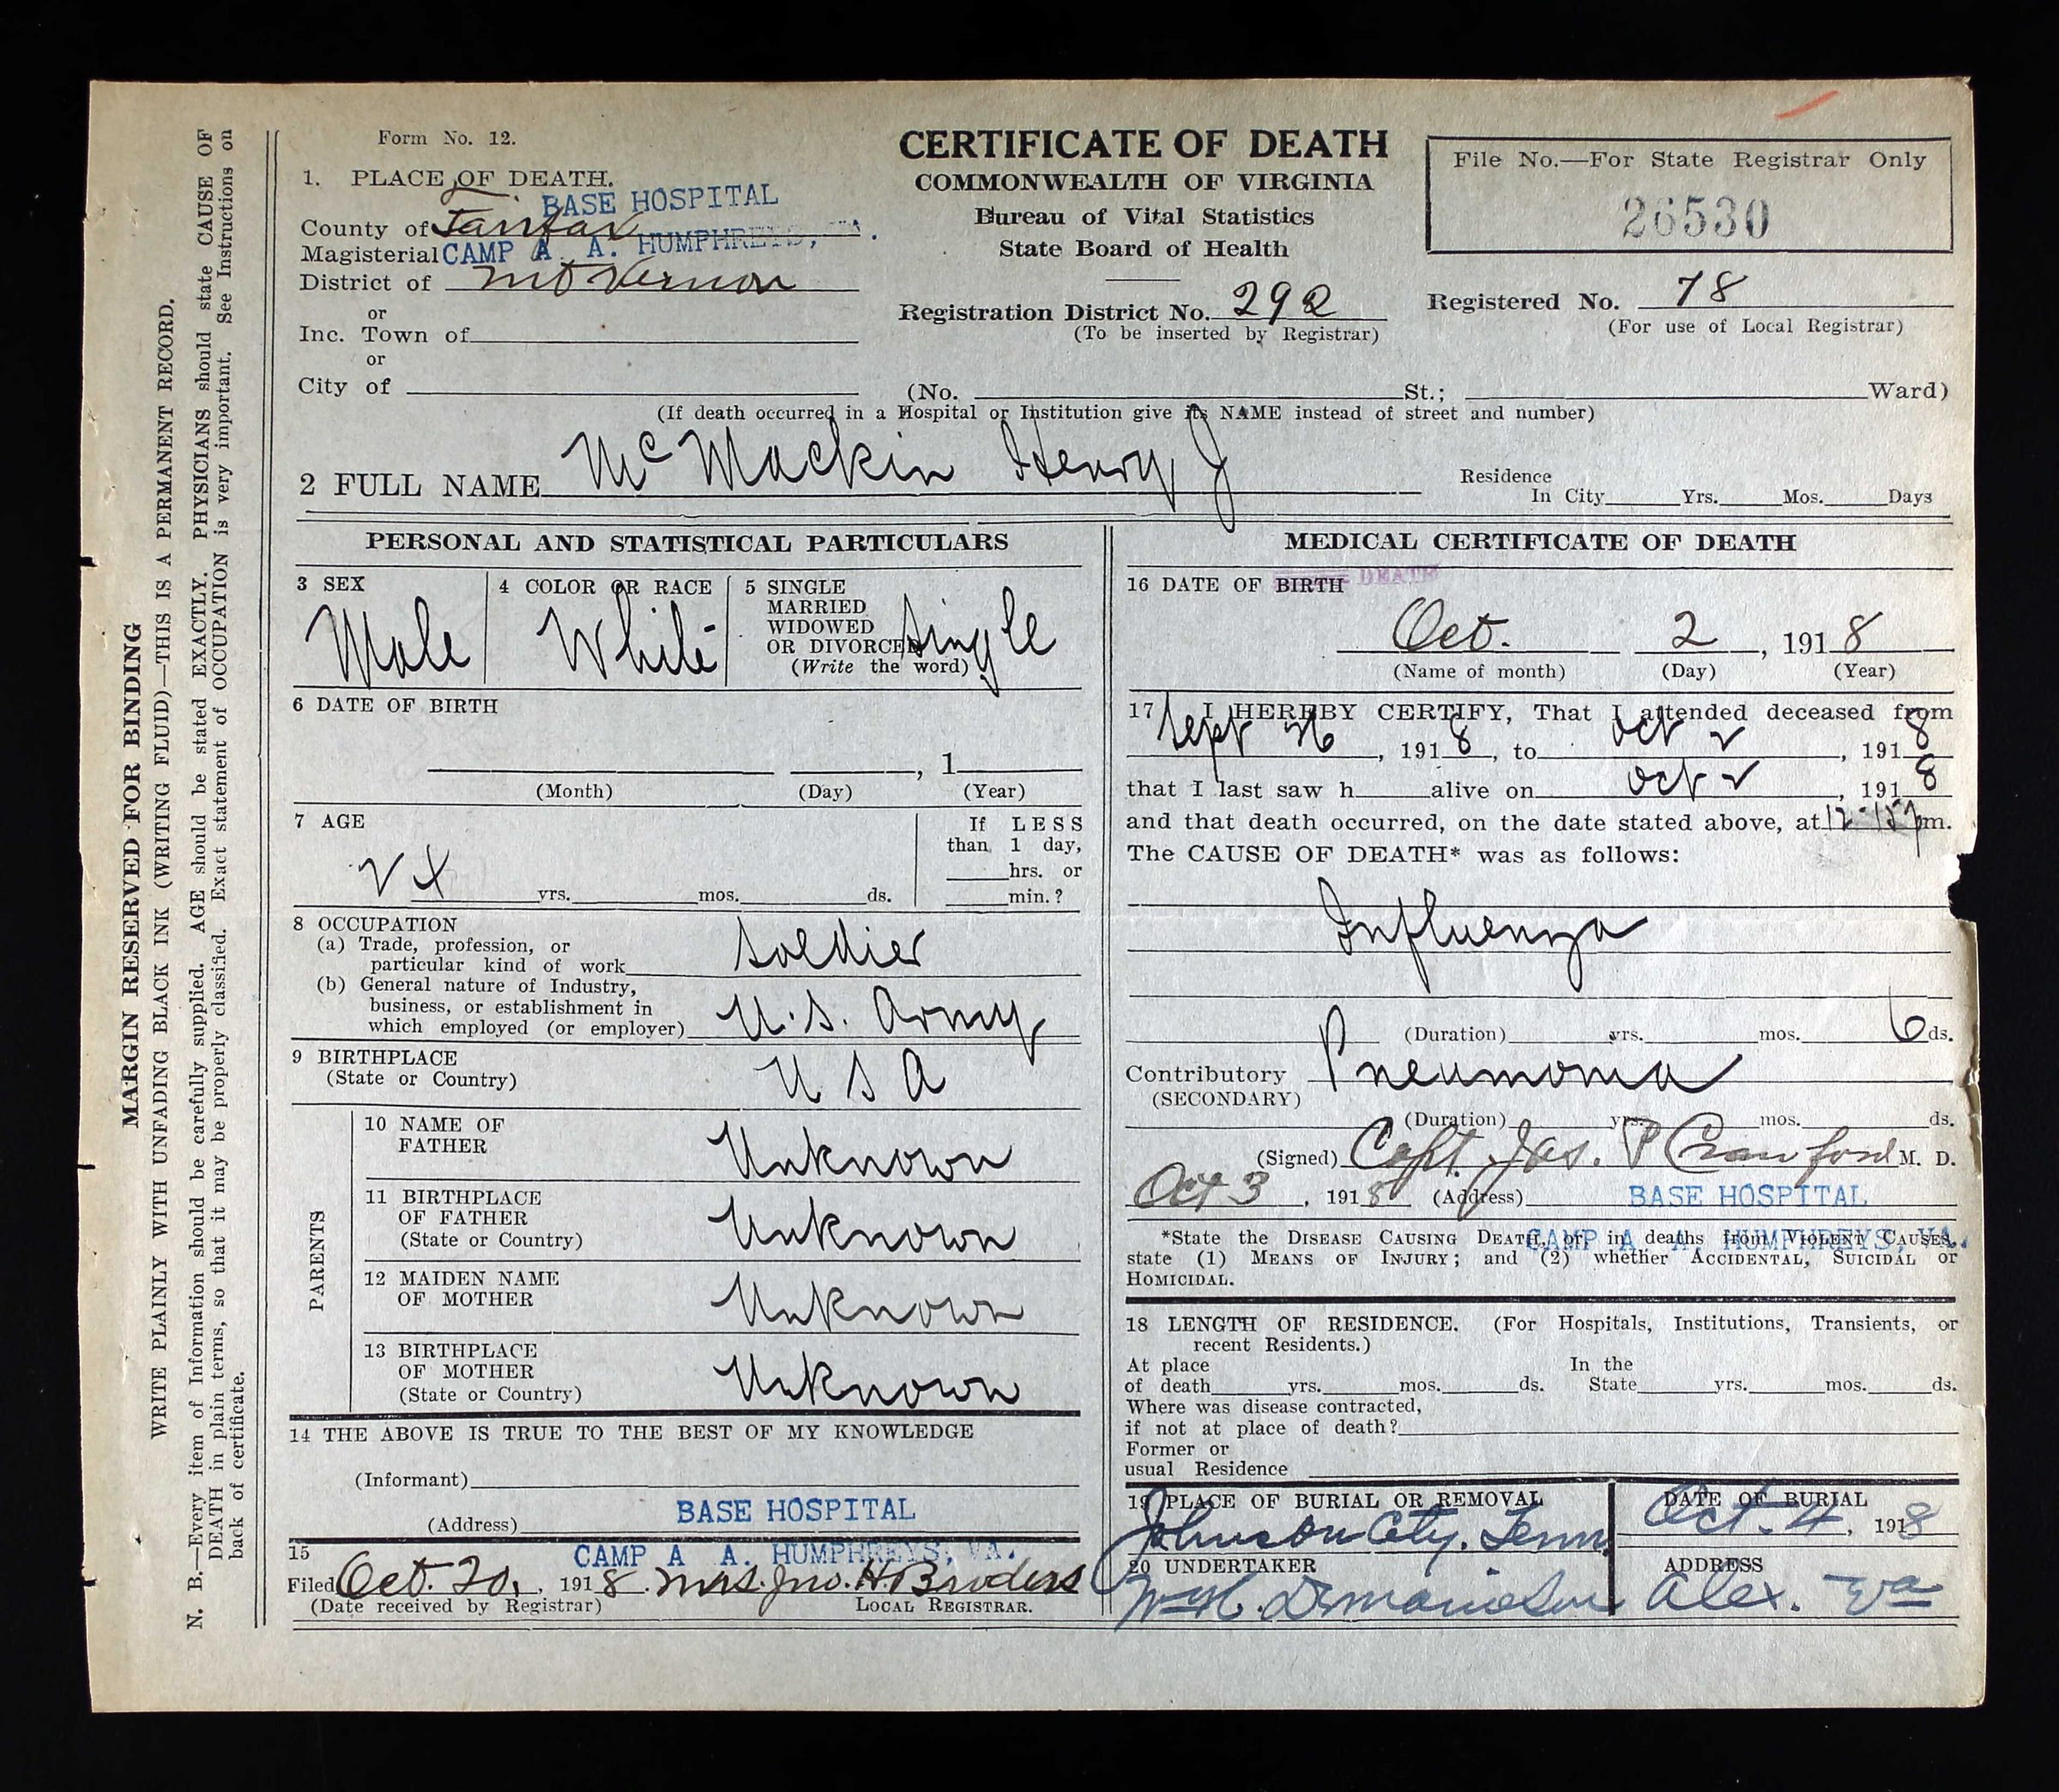 MARGIN RESERVED FOR BINDING
WRITE PLAINLY WITH UNFADING BLACK INK (WRITING FLUID)—THIS IS A PERMANENT RECORD.
N. B.—Every item of Information should be carefully supplied. AGE should be stated EXACTLY. PHYSICIANS should state CAUSE OF
DEATH in plain terms, so that it may be properly classified. Exact statement of OCCUPATION is very important. See Instructions on
back of certificate.
Form No. 12.
CERTIFICATE OF DEATH
COMMONWEALTH OF VIRGINIA
Bureau of Vital Statistics
State Board of Health
File No.—For State Registrar Only
26530
1. PLACE OF DEATH.
BASE HOSPITAL
County of Fairfax
CAMP A. A. HUMPHREYS, VA.
Magisterial
District of Mt Vernon
or
Inc. Town of
or
City of
Registration District No. 292
(To be inserted by Registrar)
Registered No. 78
(For use of Local Registrar)
(No. St.; Ward)
(If death occurred in a Hospital or Institution give its NAME instead of street and number)
2 FULL NAME McMackin Henry J
Residence
In City Yrs. Mos. Days
PERSONAL AND STATISTICAL PARTICULARS
3 SEX
Male
4 COLOR OR RACE
White
5 SINGLE
MARRIED
WIDOWED
OR DIVORCED
(Write the word)
Single
6 DATE OF BIRTH
, 1
(Month) (Day) (Year)
7 AGE
yrs. mos. ds.
If LESS
than 1 day,
hrs. or
min.?
8 OCCUPATION
(a) Trade, profession, or
particular kind of work soldier
(b) General nature of Industry,
business, or establishment in
which employed (or employer) U.S. Army
9 BIRTHPLACE
(State or Country) U S A
PARENTS
10 NAME OF
FATHER Unknown
11 BIRTHPLACE
OF FATHER
(State or Country) Unknown
12 MAIDEN NAME
OF MOTHER Unknown
13 BIRTHPLACE
OF MOTHER
(State or Country) Unknown
14 THE ABOVE IS TRUE TO THE BEST OF MY KNOWLEDGE
(Informant)
BASE HOSPITAL
(Address)
CAMP A A. HUMPHREYS, VA.
15
Filed Oct. 20, , 1918. Mrs. Jno. H. Broders
(Date received by Registrar) LOCAL REGISTRAR.
MEDICAL CERTIFICATE OF DEATH
16 DATE OF BIRTH DEATH
Oct. 2, 1918
(Name of month) (Day) (Year)
17 I HEREBY CERTIFY, That I attended deceased from
Sept 26, 1918, to Oct 2, 1918
that I last saw h alive on Oct 2, 1918
and that death occurred, on the date stated above, at m.
The CAUSE OF DEATH* was as follows:
Influenza
(Duration) yrs. mos. 6 ds.
Contributory Pneumonia
(SECONDARY)
(Duration) yrs. mos. ds.
(Signed) Capt. Jas. P Crawford M. D.
Oct 3, 1918 (Address) BASE HOSPITAL
CAMP A A HUMPHREYS, VA.
*State the DISEASE CAUSING DEATH, or, in deaths from VIOLENT CAUSES,
state (1) MEANS OF INJURY; and (2) whether ACCIDENTAL, SUICIDAL or
HOMICIDAL.
18 LENGTH OF RESIDENCE. (For Hospitals, Institutions, Transients, or
recent Residents.)
At place In the
of death yrs. mos. ds. State yrs. mos. ds.
Where was disease contracted,
if not at place of death?
Former or
usual Residence
19 PLACE OF BURIAL OR REMOVAL
Johnson City, Tenn.
DATE OF BURIAL
Oct. 4, 1918
20 UNDERTAKER
ADDRESS
Alex. Va